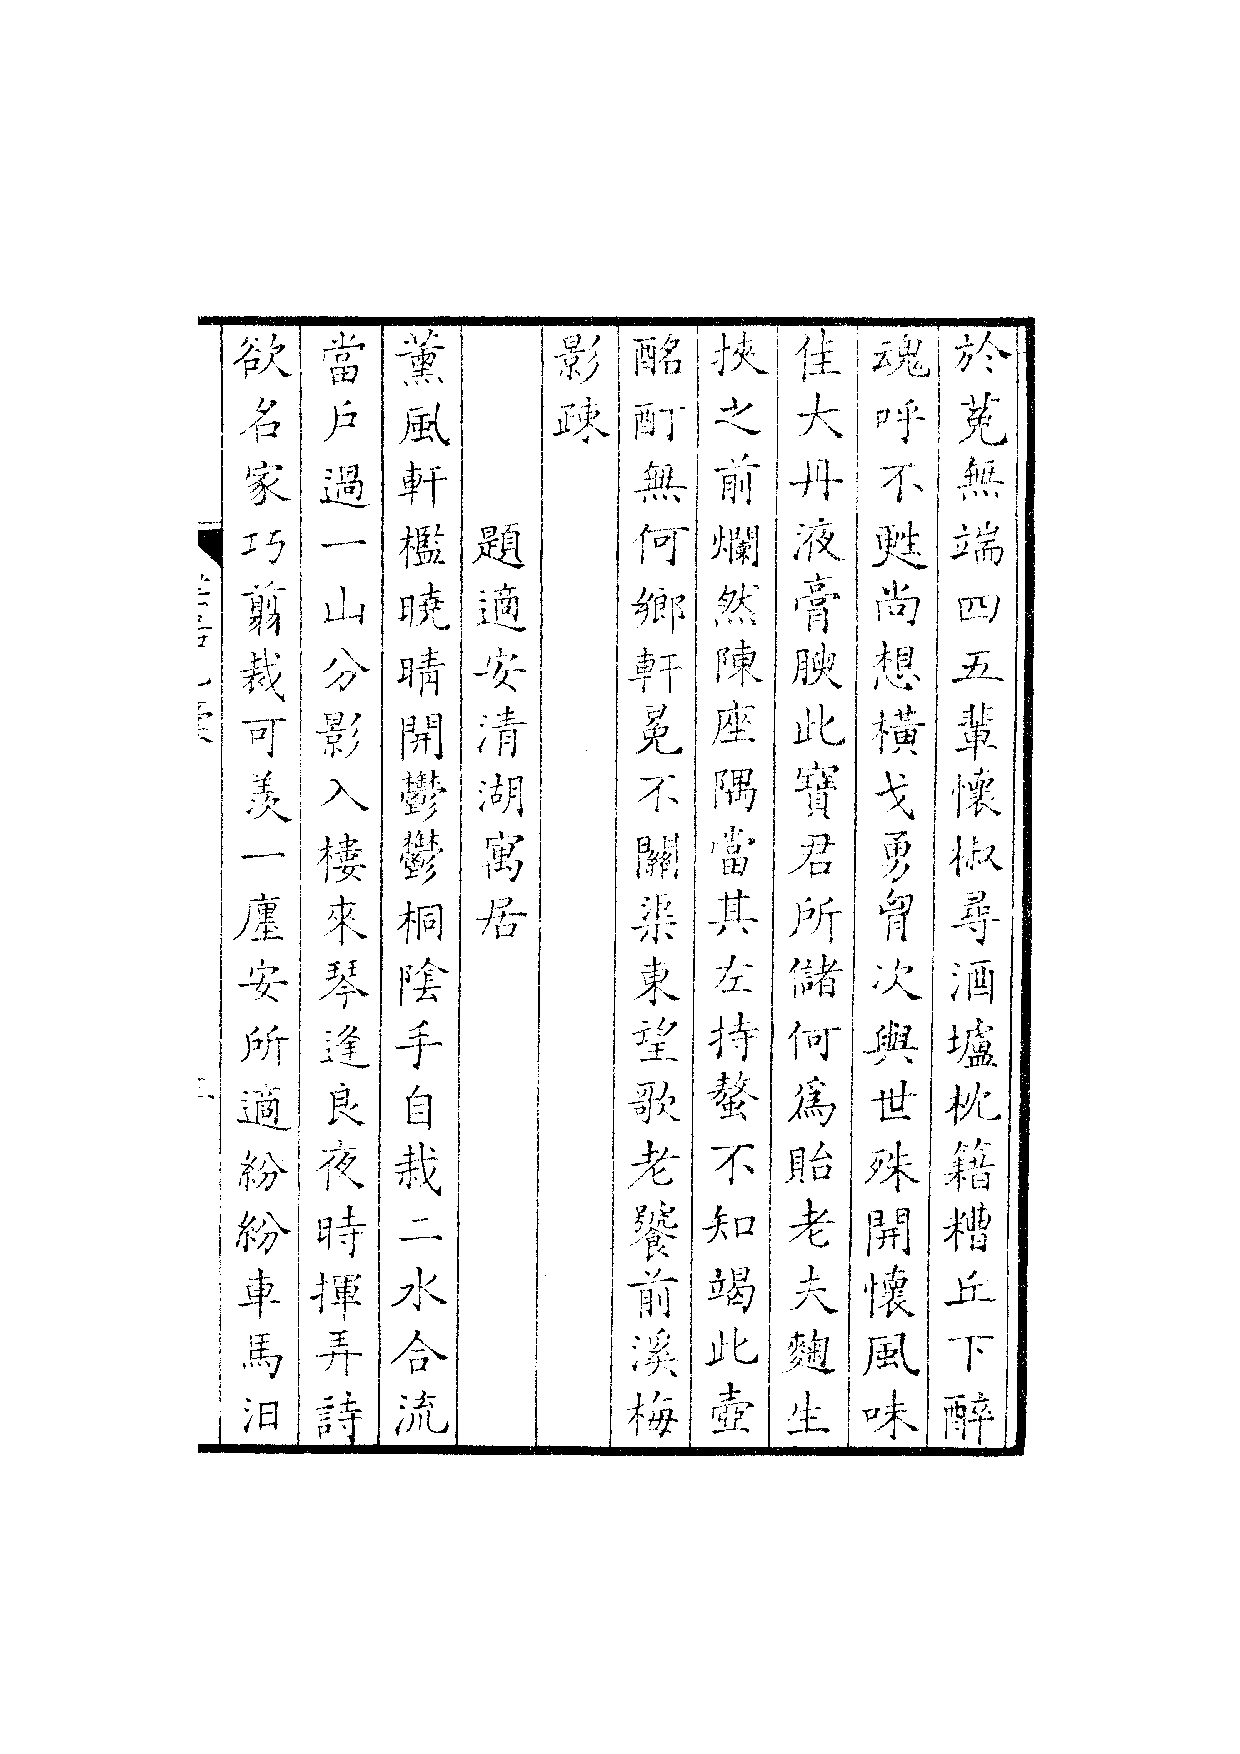 於菟無端四五輩懷椒尋酒壚枕籍糟丘下醉
魂呼不甦尚想橫戈勇胷次與世殊開懷風味
佳大丹液膏腴此寶君所儲何爲貽老夫麴生
挾之前爛然陳座隅當其左持螯不知竭此壺
酩酊無何鄉軒冕不關渠東望歌老饕前溪梅
影疎
題適安清湖寓居
薰風軒檻曉晴開鬱鬱桐陰手自栽二水合流
當戶過一山分影入樓來琴逢良夜時揮弄詩
欲名家巧翦裁可羨一廛安所適紛紛車馬汩